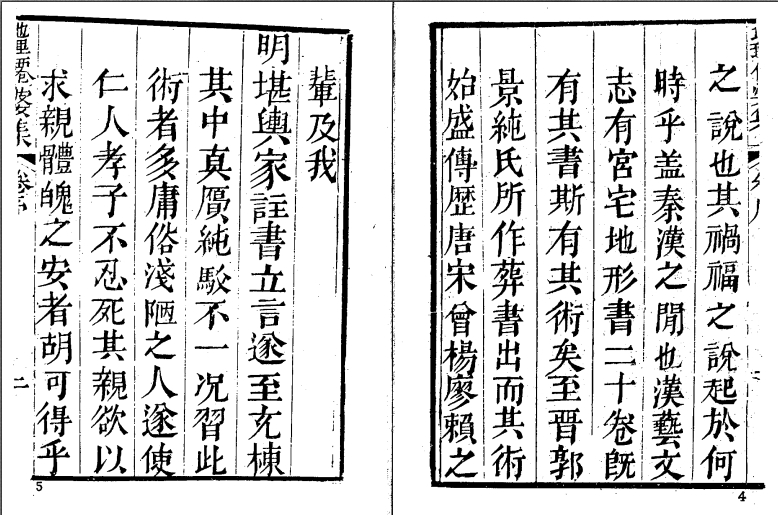 之說也其禍福之說起於何
時乎盖秦漢之間也漢藝文
志有宮宅地形書二十卷旣
有其書斯有其術矣至晋郭
景純氏所作葬書出而其術
始盛傳歷唐宋曾楊廖賴之
4
輩及我
明堪輿家註書立言遂至充棟
其中真贋純駁不一况習此
術者多庸俗淺陋之人遂使
仁人孝子不忍死其親欲以
求親體魄之安者胡可得乎
二
5